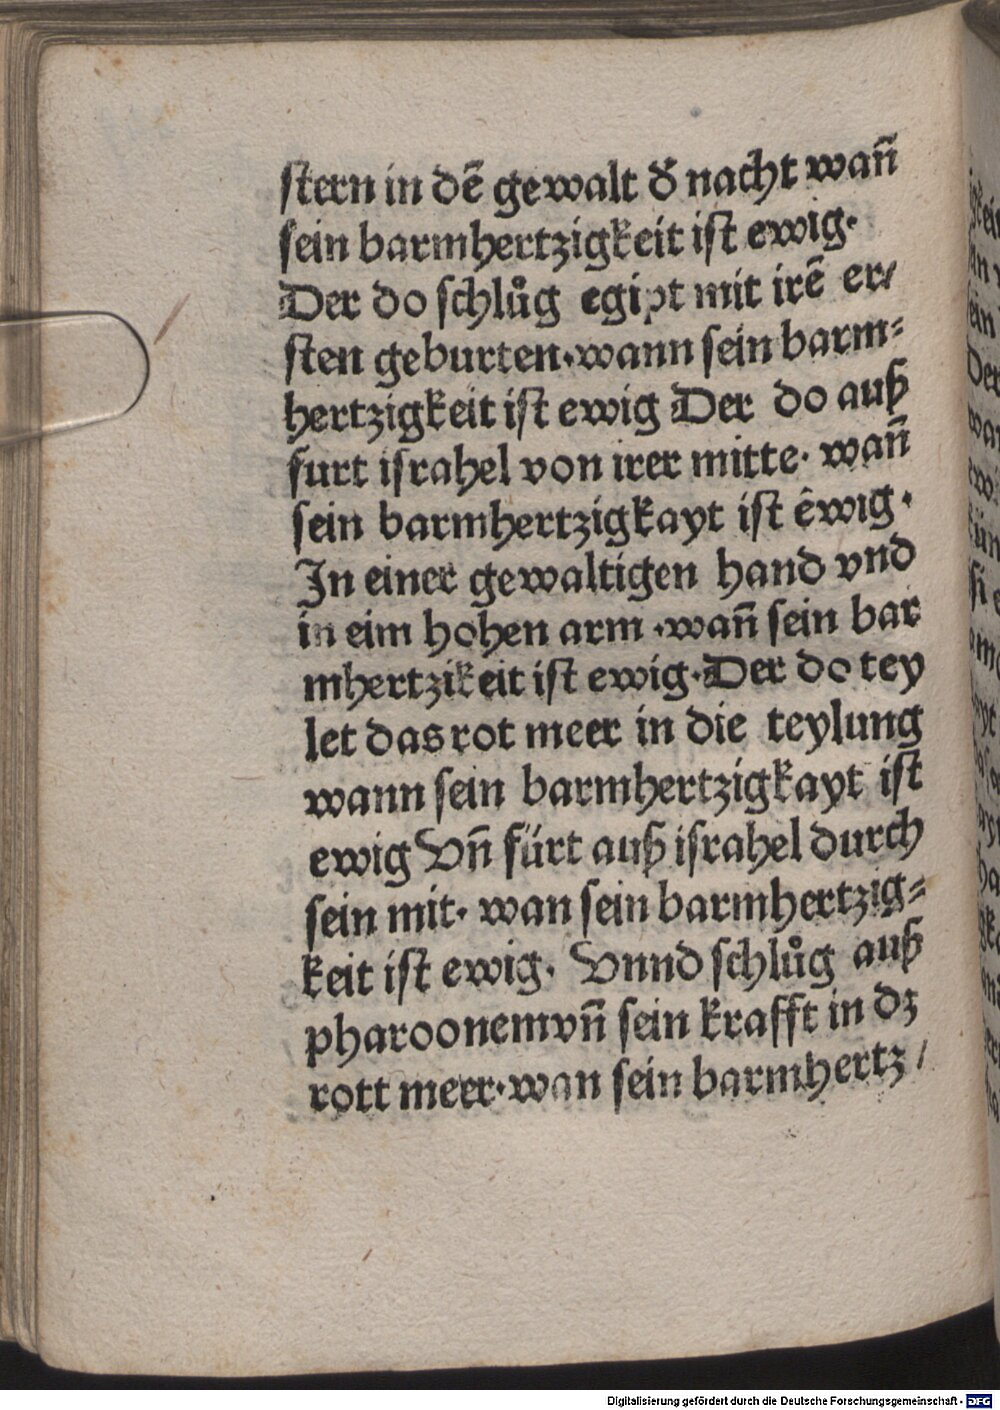 ſtern in dē gewalt d̕ nacht wañ
ſein barmhertzigkeit iſt ewig·
Der do ſchlůg egipt mit irē er/
ſten geburten·wann ſein barm⸗
hertzigkeit iſt ewig Der do auß
furt iſrahel von irer mitte· wañ
ſein barmhertzigkayt iſt êwig·
In einer gewaltigen hand vnd
in eim hohen arm ·wañ ſein bar
mhertzikeit iſt ewig·Der do tey
let das rot meer in die teylung
wann ſein barmhertzigkayt iſt
ewig Vñ fürt auß iſrahel durch
ſein mit· wan ſein barmhertzig⸗
keit iſt ewig· Vnnd ſchlůg auß
pharoonem vñ ſein krafft in dꝫ
rott meer·wan ſein barmhertz/
Digitalisierung gefördert durch die Deutsche Forschungsgemeinschaft - DFG